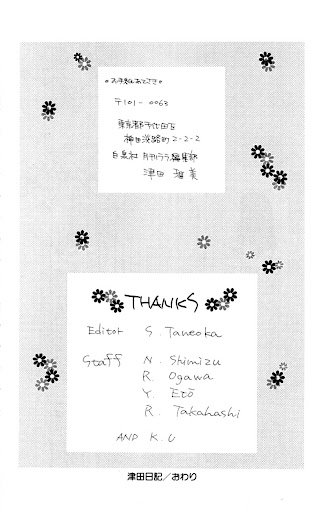 ◦お手紙のあてさき◦
〒101-0063
東京都千代田区
神田淡路町2-2-2
白泉社 月刊ララ編集部
津田 雅美
THANKS
Editor S. Taneoka
Staff N. Shimizu
R. Ogawa
Y. Etō
R. Takahashi
AND K.U
津田日記／おわり